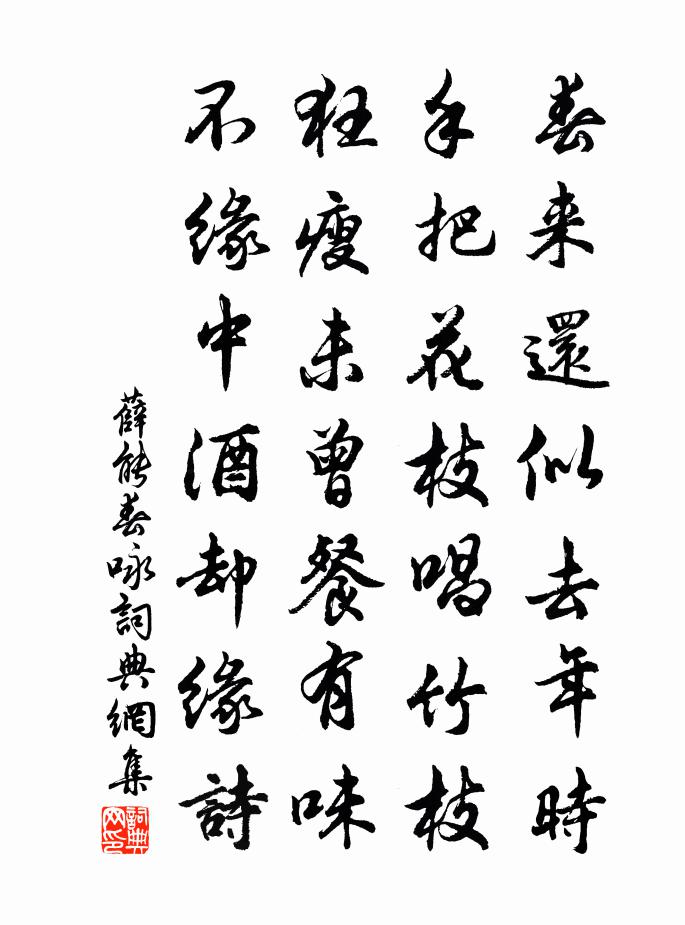 春来還似去年時
手把花枝唱竹枝
狂瘦未曾餐有味
不緣中酒却緣詩
薛能春咏詞典網集
詞典网印